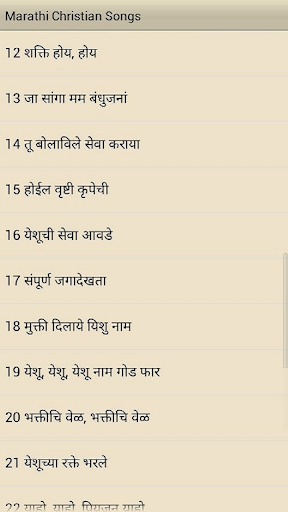 Marathi Christian Songs
12 शक्ति होय, होय
13 जा सांगा मम बंधुजनां
14 तू बोलाविले सेवा कराया
15 होईल वृष्टी कृपेची
16 येशूची सेवा आवडे
17 संपूर्ण जगादेखता
18 मुक्ती दिलाये यिशु नाम
19 येशू, येशू, येशू नाम गोड फार
20 भक्तीचि वेळ, भक्तीचि वेळ
21 येशूच्या रक्ते भरले
22 याहो, याहो, प्रियजन याहो